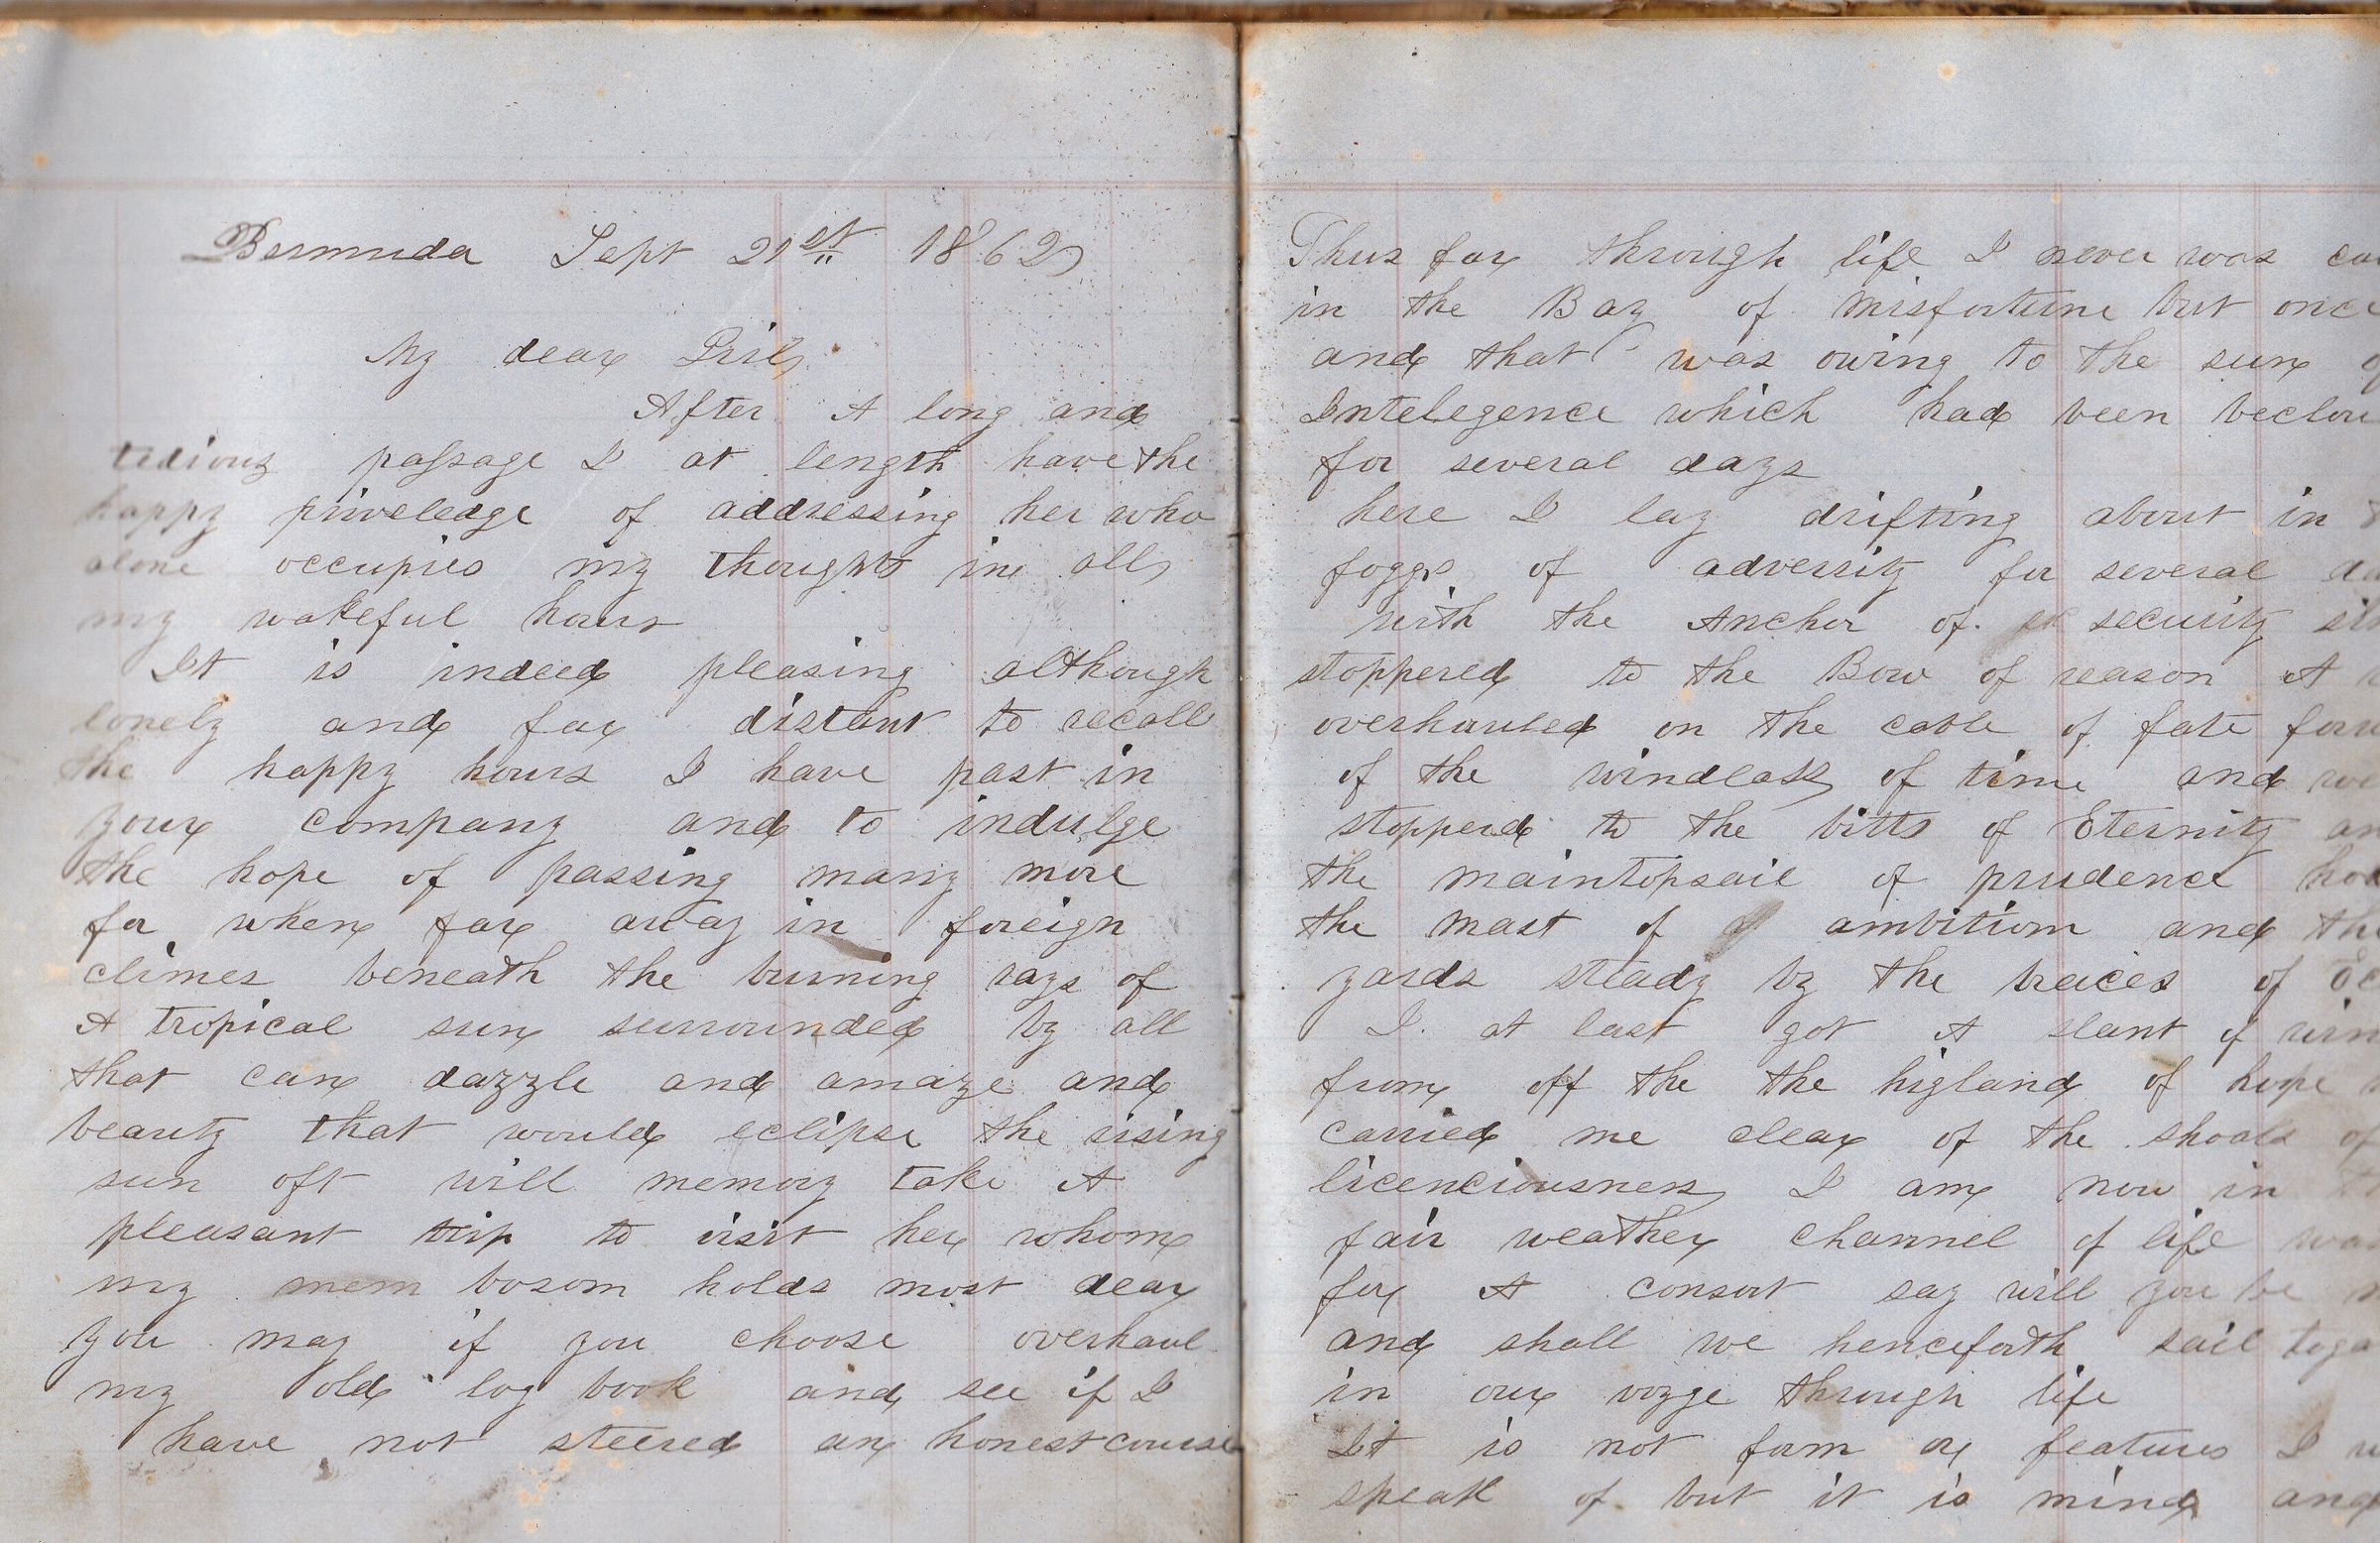 Bermuda Sept 21st 1862
My dear Girl
After A long and
tedious passage I at length have the
happy priveledge of addressing her who
alone occupies my thoughts in all
my wakeful hours
It is indeed pleasing although
lonely and far distant to recall
the happy hours I have past in
your company and to indulge
the hope of passing many more
for when far away in foreign
climes beneath the burning rays of
A tropical sun surrounded by all
that can dazzle and amaze and
beauty that would eclipse the rising
sun oft will memory take A
pleasant trip to visit her whom
my mem bosom holds most dear
you may if you choose overhaul
my old log book and see if I
have not steered an honest course
Thus far through life I never was
in the Bay of Misfortune but once
and that was owing to the sun
Intelegence which had been beclou
for several days
here I lay drifting about in
foggs of adversity for several da
with the Anchor of security
stoppered to the Bow of reason A
overhauled on the cable of fate
of the windlass of time and
stopperd to the bitts of Eternity an
the maintopsail of prudence
the mast of ambition and the
yards steady by the braces of
I at last got A slant of win
from off the the higland of hope
carried me clear of the shoals of
licenciousness I am now in
fair weather channel of life
for A consort say will you be
and shall we henceforth sail toga
in our vozge through life
It is not form or features I
speak of but it is mind and